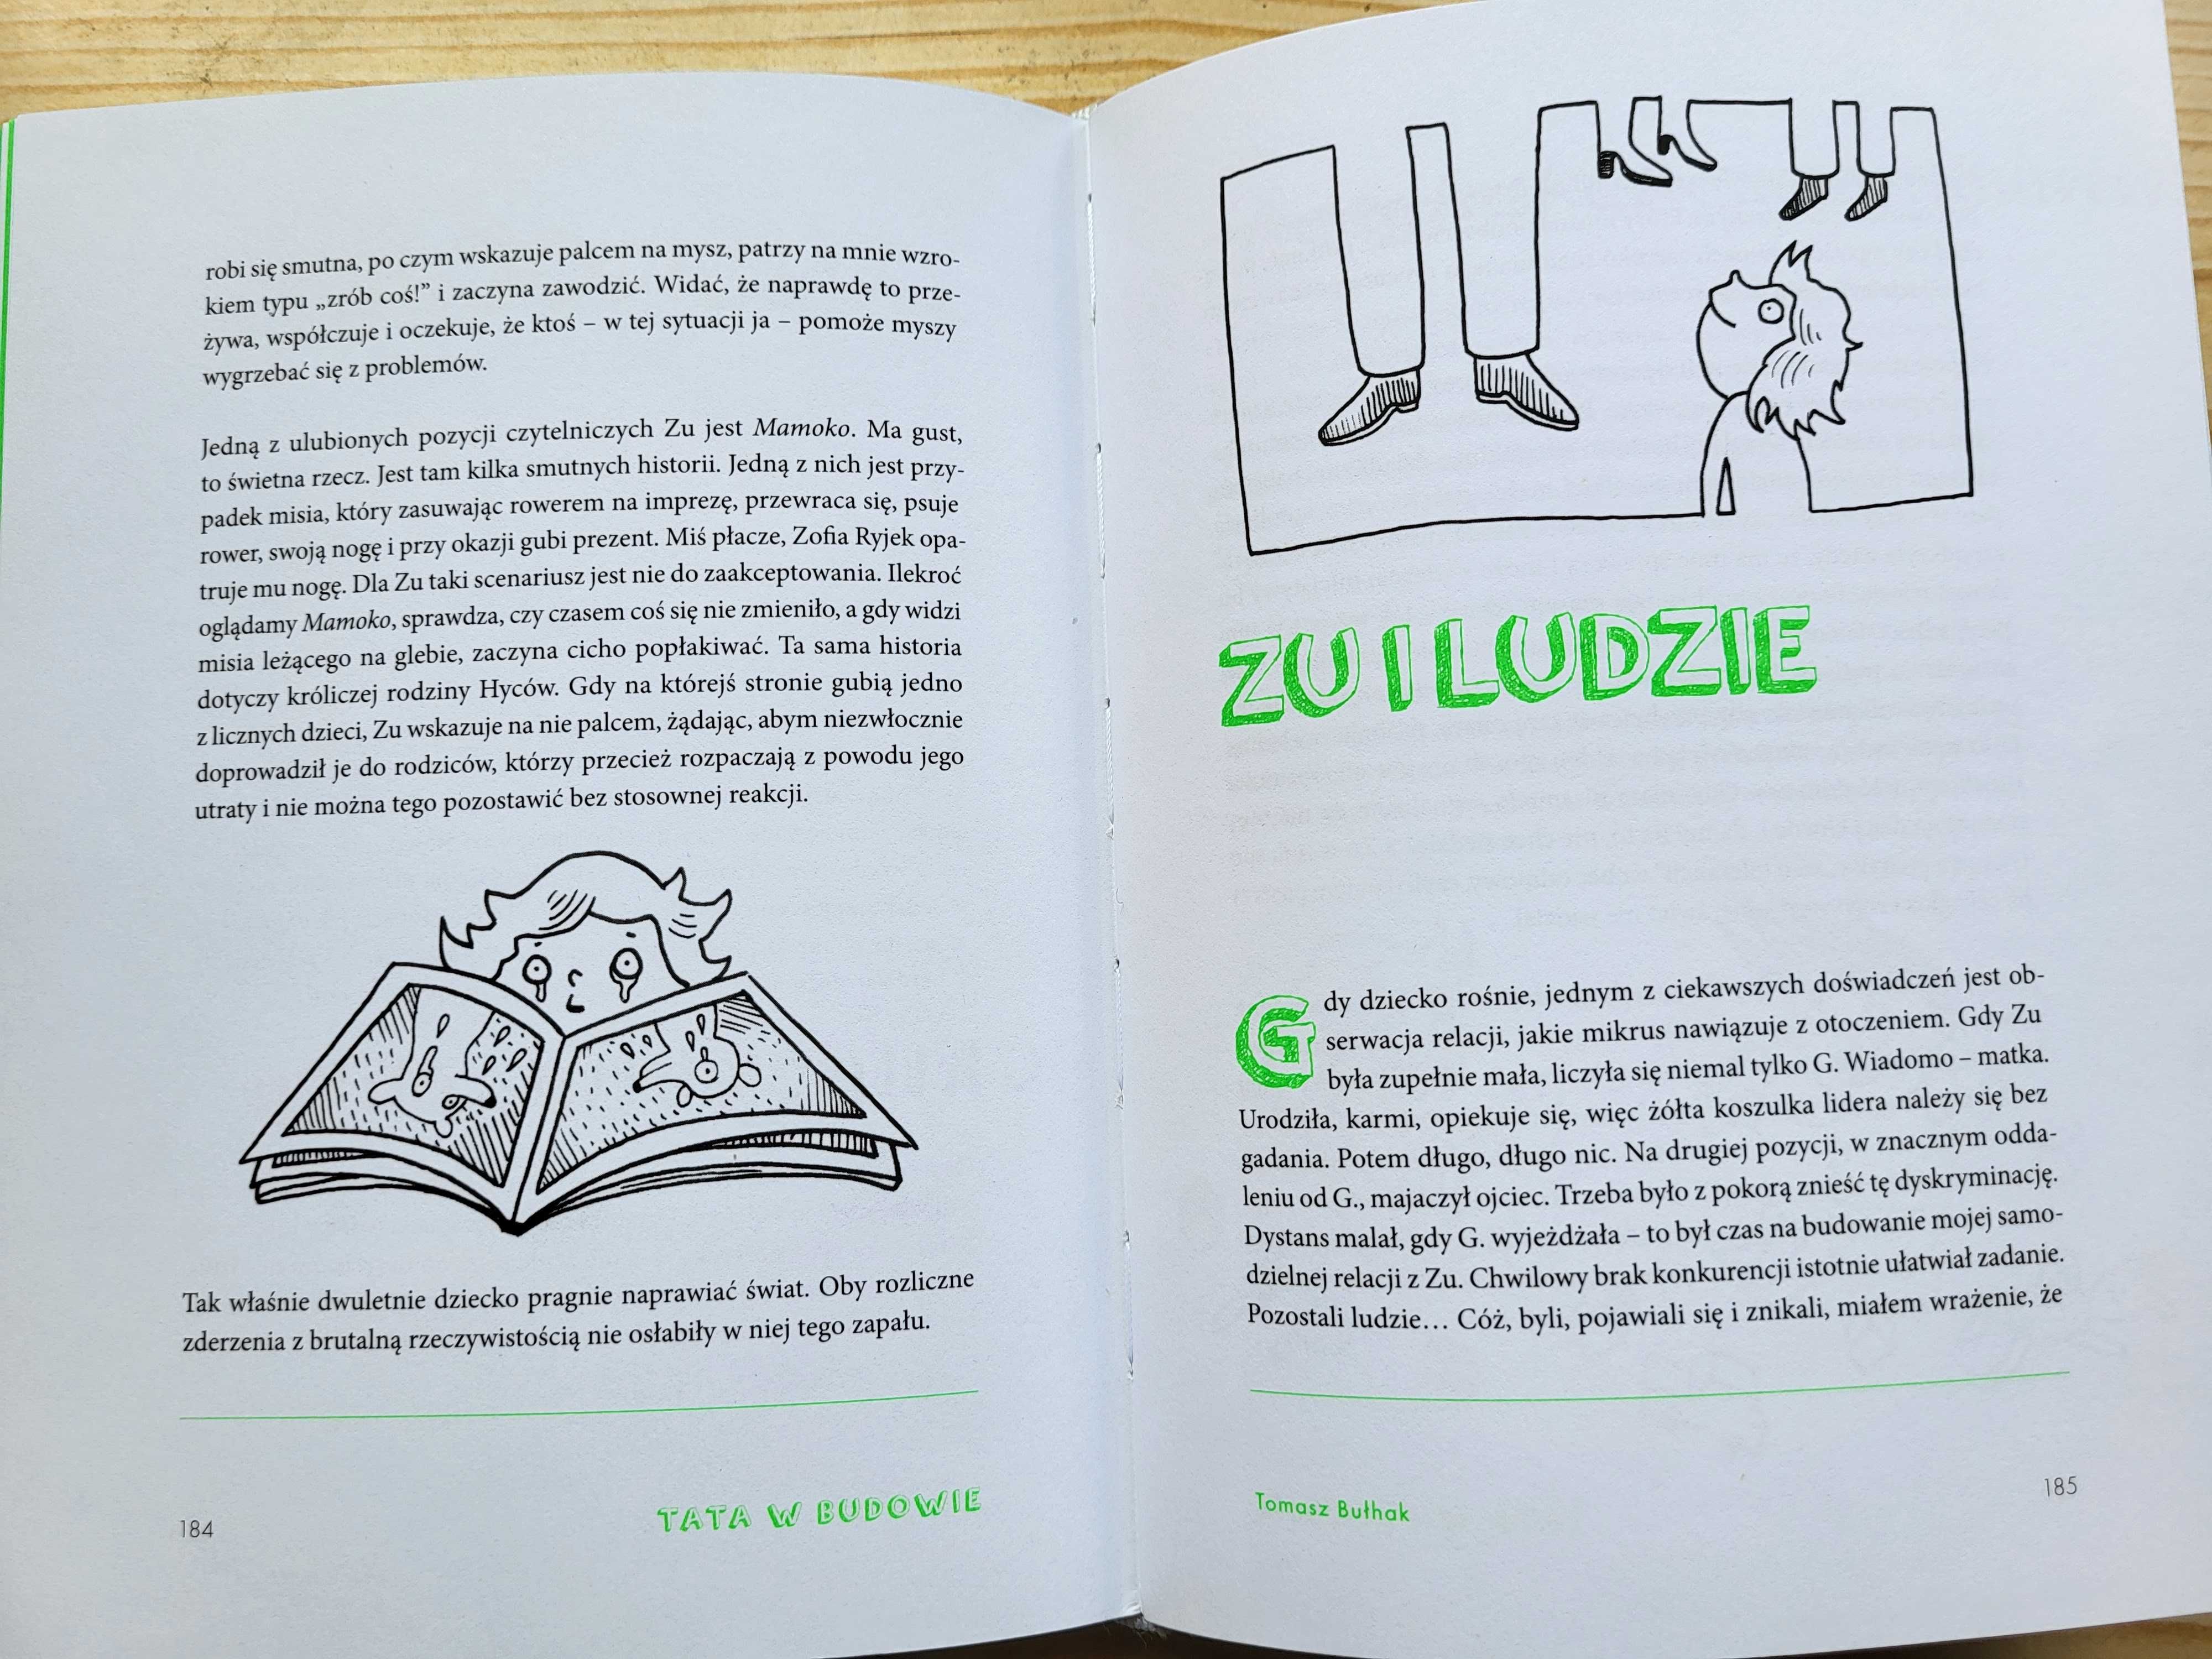 robi się smutna, po czym wskazuje palcem na mysz, patrzy na mnie wzro-
kiem typu „zrób coś!” i zaczyna zawodzić. Widać, że naprawdę to prze-
żywa, współczuje i oczekuje, że ktoś – w tej sytuacji ja – pomoże myszy
wygrzebać się z problemów.
Jedną z ulubionych pozycji czytelniczych Zu jest Mamoko. Ma gust,
to świetna rzecz. Jest tam kilka smutnych historii. Jedną z nich jest przy-
padek misia, który zasuwając rowerem na imprezę, przewraca się, psuje
rower, swoją nogę i przy okazji gubi prezent. Miś płacze, Zofia Ryjek opa-
truje mu nogę. Dla Zu taki scenariusz jest nie do zaakceptowania. Ilekroć
oglądamy Mamoko, sprawdza, czy czasem coś się nie zmieniło, a gdy widzi
misia leżącego na glebie, zaczyna cicho popłakiwać. Ta sama historia
dotyczy króliczej rodziny Hyców. Gdy na którejś stronie gubią jedno
z licznych dzieci, Zu wskazuje na nie palcem, żądając, abym niezwłocznie
doprowadził je do rodziców, którzy przecież rozpaczają z powodu jego
utraty i nie można tego pozostawić bez stosownej reakcji.
Tak właśnie dwuletnie dziecko pragnie naprawiać świat. Oby rozliczne
zderzenia z brutalną rzeczywistością nie osłabiły w niej tego zapału.
184
TATA W BUDOWIE
ZU I LUDZIE
Gdy dziecko rośnie, jednym z ciekawszych doświadczeń jest ob-
serwacja relacji, jakie mikrus nawiązuje z otoczeniem. Gdy Zu
była zupełnie mała, liczyła się niemal tylko G. Wiadomo – matka.
Urodziła, karmi, opiekuje się, więc żółta koszulka lidera należy się bez
gadania. Potem długo, długo nic. Na drugiej pozycji, w znacznym odda-
leniu od G., majaczył ojciec. Trzeba było z pokorą znieść tę dyskryminację.
Dystans malał, gdy G. wyjeżdżała – to był czas na budowanie mojej samo-
dzielnej relacji z Zu. Chwilowy brak konkurencji istotnie ułatwiał zadanie.
Pozostali ludzie… Cóż, byli, pojawiali się i znikali, miałem wrażenie, że
Tomasz Bułhak
185